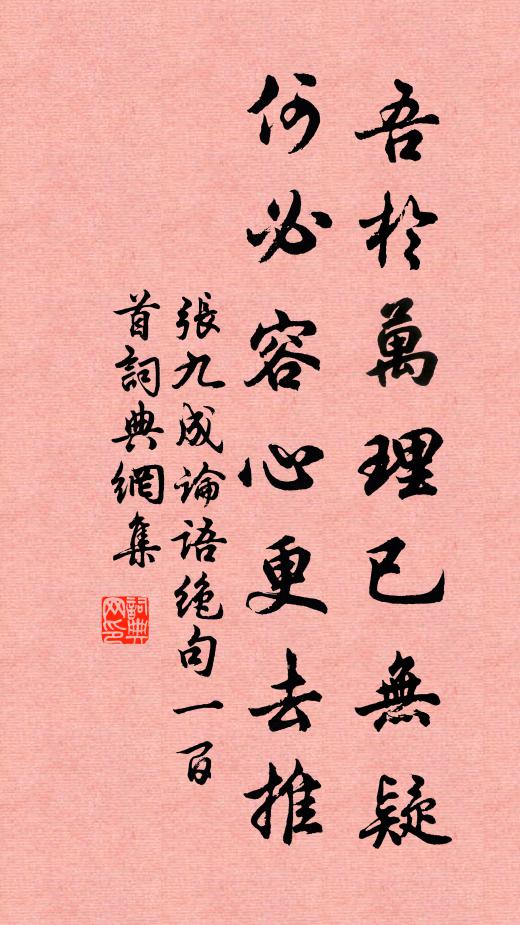 吾於萬理已無疑
何必容心更去推
張九成論語絶句一百
首詞典網集
詞典
网印